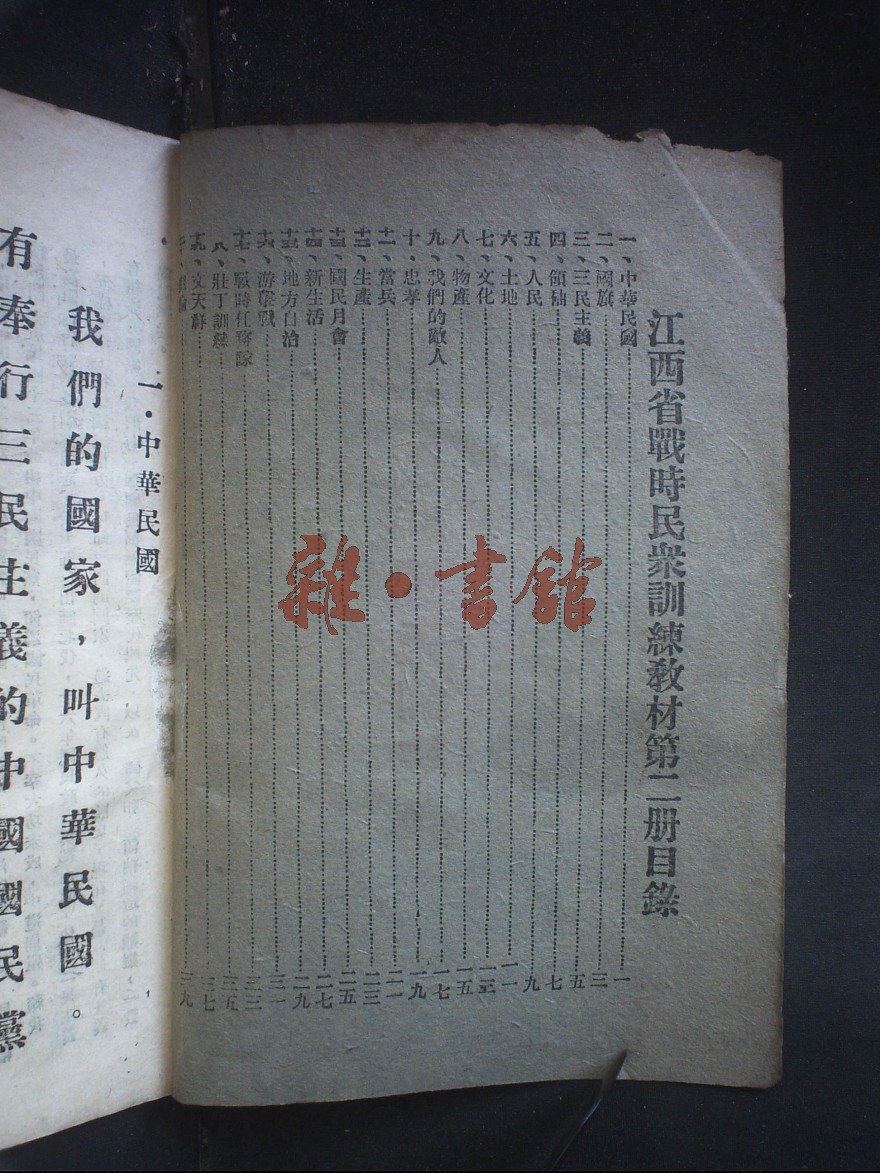 江西省戰時民衆訓練教材第二册目錄
一、中華民國 一
二、國旗 三
三、三民主義 五
四、領袖 七
五、人民 九
六、土地 一一
七、文化 一三
八、物產 一五
九、我們的敵人 一七
十、忠孝 一九
十一、當兵 二一
十二、生產 二三
十三、國民月會 二五
十四、新生活 二七
十五、地方自治 二九
十六、游擊戰 三一
十七、戰時任務隊 三三
十八、壯丁訓練 三五
十九、文天祥 三七
三九
雜·書館
一·中華民國
我們的國家，叫中華民國。
有奉行三民主義的中國國民黨